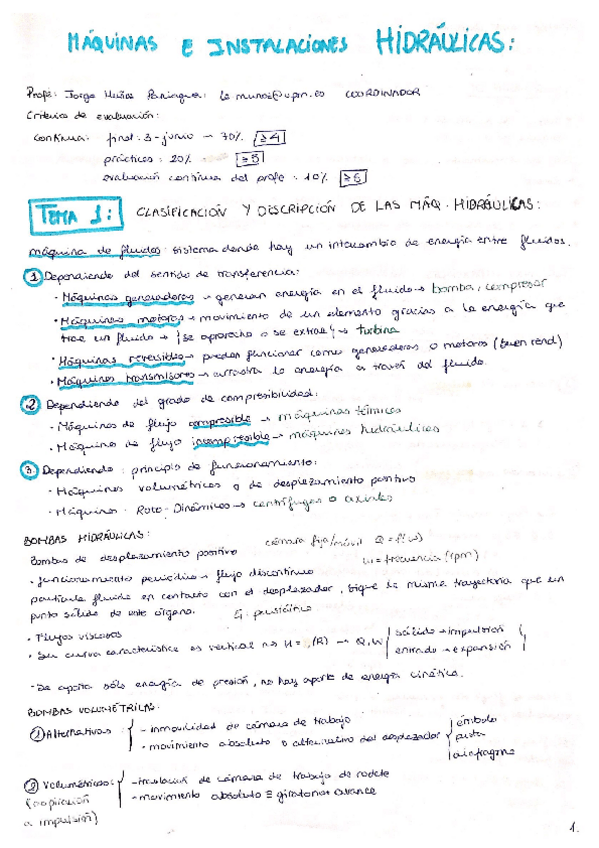 MÁQUINAS E INSTALACIONES HIDRÁULICAS:
Profe: Jorge Muñoz COORDINADOR
Criterios de evaluación:
Continua: final: 3-junio → 70% ≥4
prácticas: 20% ≥5
evaluación continua del profe: 10% ≥5
TEMA 1: CLASIFICACIÓN Y DESCRIPCIÓN DE LAS MÁQ. HIDRÁULICAS:
máquina de fluidos: sistema donde hay un intercambio de energía entre fluidos.
① Dependiendo del sentido de transferencia:
· Máquinas generadoras → generan energía en el fluido → bomba, compresor
· Máquinas motoras → movimiento de un elemento gracias a la energía que
trae un fluido → ¡se aprovecha o se extrae! → turbina
· Máquinas reversibles → pueden funcionar como generadoras o motoras (buen rend)
· Máquinas transmisoras → la energía a través del fluido.
② Dependiendo del grado de compresibilidad:
· Máquinas de flujo compresible → máquinas térmicas
· Máquina de flujo incompresible → máquinas hidráulicas
③ Dependiendo: principio de funcionamiento:
· Máquinas volumétricas o de desplazamiento positivo
· Máquinas Roto-Dinámicas → centrífugas o axiales
BOMBAS HIDRÁULICAS:
Bombas de desplazamiento positivo cámara fija/móvil Q = f(ω)
ω = frecuencia (rpm)
· funcionamiento periódico → flujo discontinuo
partícula fluida en contacto con el desplazador, sigue la misma trayectoria que un
punto sólido de este órgano.
· Flujos viscosos
· Su curva característica es vertical → Q, salida → impulsión
entrada → expansión
· Se aporta sólo energía de presión, no hay aporte de energía cinética.
BOMBAS VOLUMÉTRICAS:
① Alternativas: - inmovilidad de cámara de trabajo
- movimiento absoluto o alternativo del desplazador émbolo
diafragma
② Volumétricas: de cámara de trabajo de
(aspiración - movimiento absoluto ≡ giratorio + avance
a impulsión)
1.